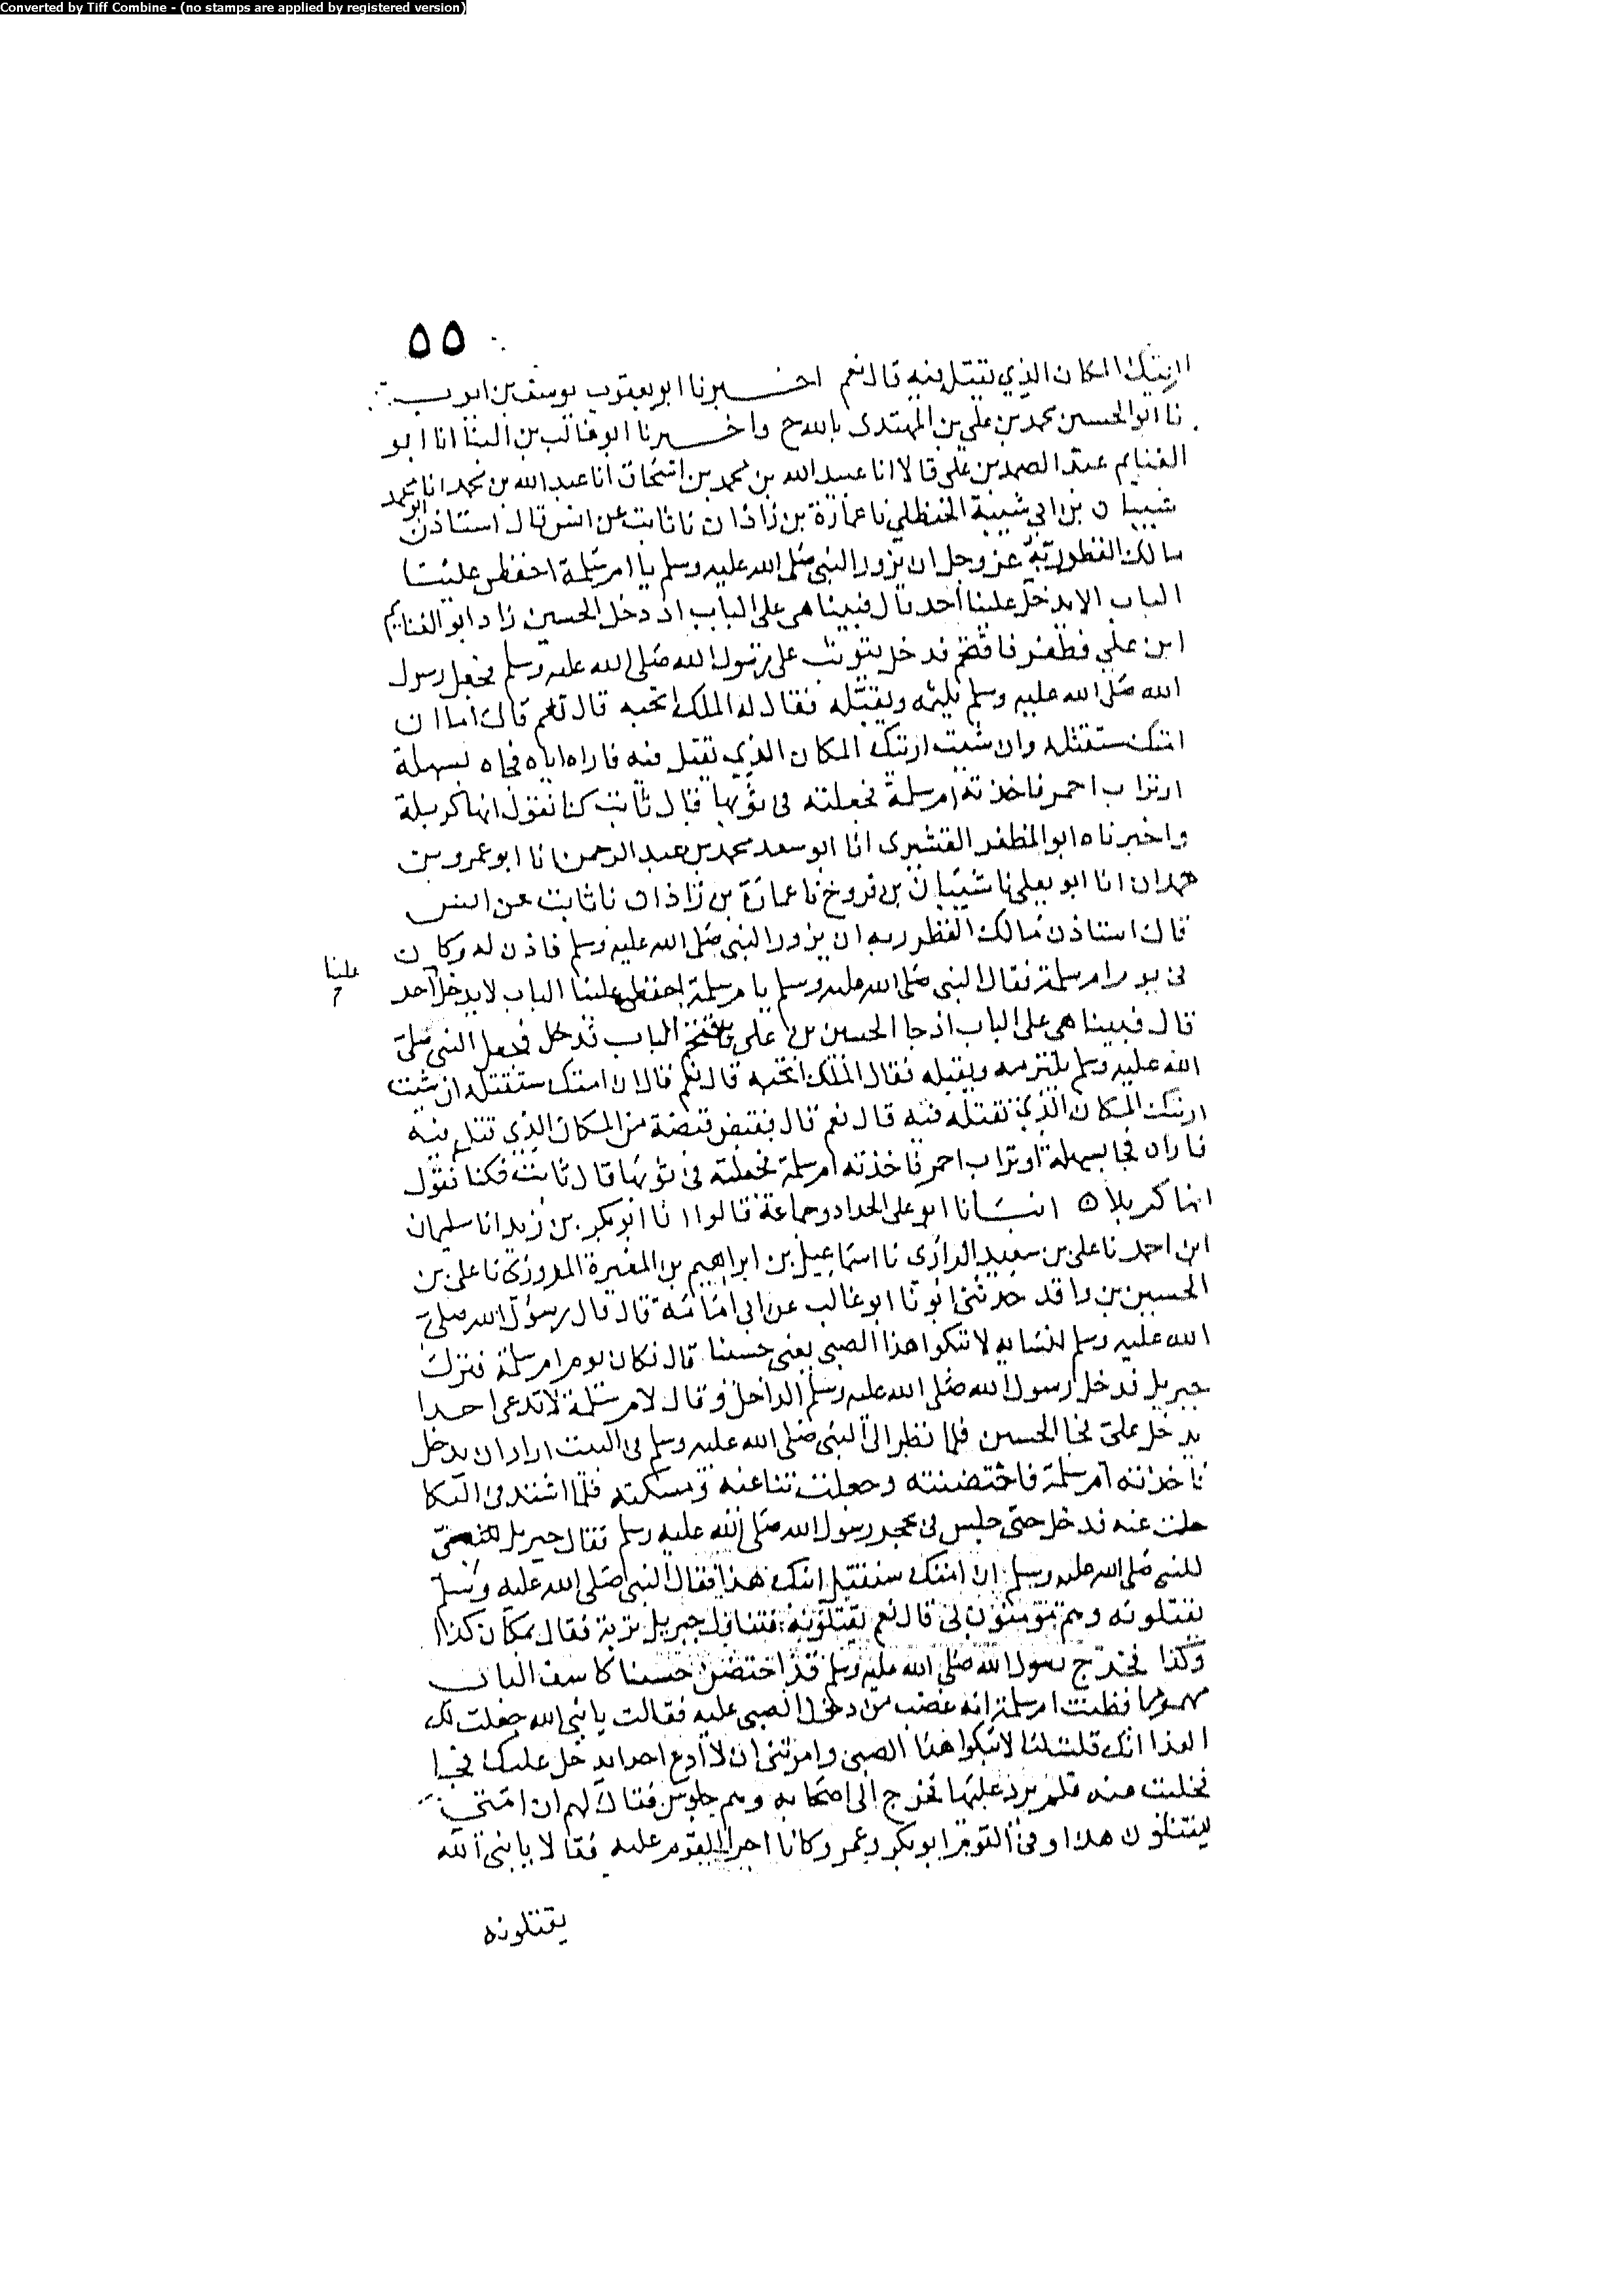 Converted by Tiff Combine - (no stamps are applied by registered version)
٥٥
اريتك المكان الذي تقتل فيه قال نعم اخبرنا ابو يعقوب يوسف بن ايوب
نا ابو الحسين محمد بن علي بن المهتدى بالله ح واخبرنا ابو غالب بن البنا انا ابو
الغنايم عبد الصمد بن علي قالا انا عبيد الله بن محمد بن اسحاق انا عبد الله بن محمد نا ابو محمد
شيبان بن ابي شيبة الحنظلي نا عمارة بن زاذان نا ثابت عن انس قال استاذن
مالك القطر ربه عز وجل ان يزور النبي صلى الله عليه وسلم يا ام سلمة احفظى علينا
الباب لا يدخل علينا احد قال فبينا هي على الباب اذ دخل الحسين زاد ابو الغنايم
ابن علي فطفر فاقتحم فدخل يتوثب على رسول الله صلى الله عليه وسلم فجعل رسول
الله صلى الله عليه وسلم يلثمه ويقبله فقال له الملك اتحبه قال نعم قال اما ان
امتك ستقتله وان شيت اريتك المكان الذي تقتل فيه فاراه اياه فجاه بسهلة
او تراب احمر فاخذته ام سلمة فجعلته في ثوبها قال ثابت كنا نقول انها كربلة
واخبرناه ابو المظفر القشيرى انا ابو سعد محمد بن عبد الرحمن انا ابو عمرو بن
حمدان انا ابو يعلى نا شيبان بن فروخ نا عمارة بن زاذان نا ثابت عن انس
قال استاذن مالك القطر ربه ان يزور النبي صلى الله عليه وسلم فاذن له وكان
في يوم ام سلمة فقال النبي صلى الله عليه وسلم يا م سلمة احفظى علينا الباب لا يدخل احد
علينا
قال فبينا هي على الباب اذ جا الحسين بن علي فاقتحم الباب فدخل فجعل النبي صلى
الله عليه وسلم يلتزمه ويقبله فقال الملك اتحبه قال نعم قال ان امتك ستقتله ان شيت
اريتك المكان الذي تقتله فيه قال نعم قال فقبض قبضة من المكان الذي تقتل فيه
فاراه فجا بسهلة او تراب احمر فاخذته ام سلمة فجعلته في ثوبها قال ثابت فكنا نقول
انها كربلا ه انبانا ابو علي الحداد وجماعة قالوا انا ابو بكر بن ريذه انا سليمان
ابن احمد نا علي بن سعيد الرازى نا اسماعيل بن ابراهيم بن المغيرة المروزي نا علي بن
الحسين بن واقد حدثني ابي نا ابو غالب عن ابي امامة قال قال رسول الله صلى
الله عليه وسلم لنسايه لا تبكوا هذا الصبي يعني حسينا قال فكان يوم ام سلمة فنزل
جبريل فدخل رسول الله صلى الله عليه وسلم الداخل وقال لام سلمة لا تدعى احدا
يدخل علي فجا الحسين فلما نظر الى النبي صلى الله عليه وسلم في البيت اراد ان يدخل
فاخذته ام سلمة فاحتضنته وجعلت تناغيه وتسكته فلما اشتد في البكا
خلت عنه فدخل حتى جلس في حجر رسول الله صلى الله عليه وسلم فقال جبريل
للنبي صلى الله عليه وسلم ان امتك ستقتل ابنك هذا فقال النبي صلى الله عليه وسلم
يقتلونه وهم مومنون بي قال نعم يقتلونه فتناول جبريل تربة فقال بمكان كذا
وكذا فخرج رسول الله صلى الله عليه وسلم قد احتضن حسينا كاسف البال
مهموما فظنت ام سلمة انه غضب من دخول الصبي عليه فقالت يا نبي الله جعلت لك
الفدا انك قلت لنا لا تبكوا هذا الصبي وامرتني ان لا ادع احدا يدخل عليك فجا
فخليت عنه فلم يرد عليها فخرج الى اصحابه وهم جلوس فقال لهم ان امتي
يقتلون هذا وفي القوم ابو بكر وعمر وكانا اجرا القوم عليه فقالا يا نبي الله
يقتلونه